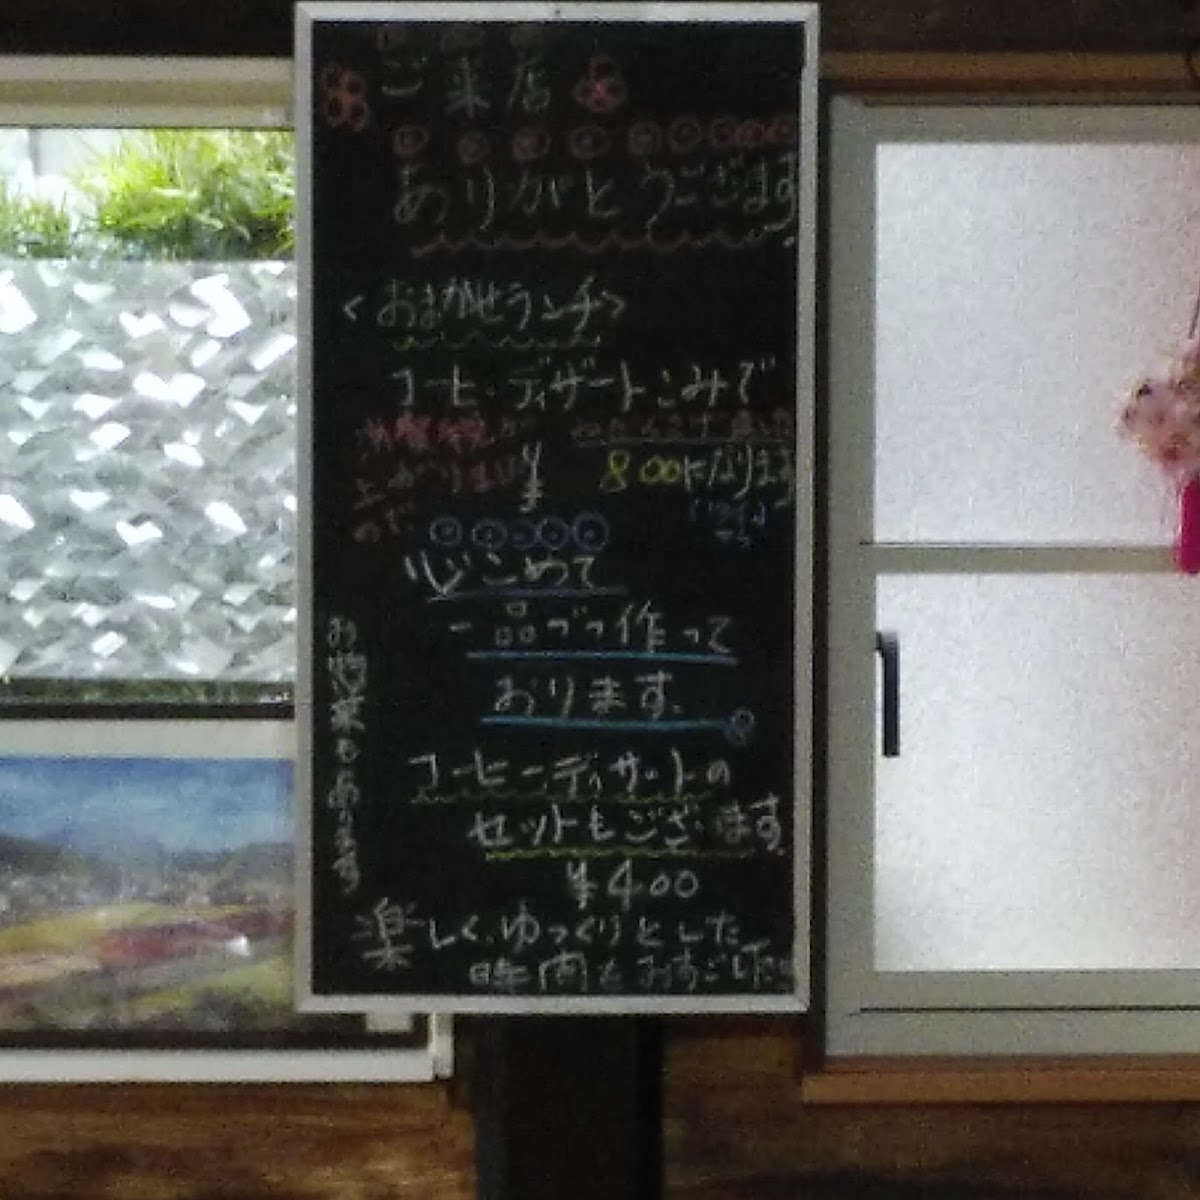 ご来店
ありがとうございます
<おまかせランチ>
コーヒ・ディザートこみで
上がりまし
ので
¥800になります
心こめて
一品づつ作って
おります。
コーヒーディザートの
セットもございます。
¥400
楽しく、ゆっくりとした
時間をおすごし下さい
お惣菜もあります